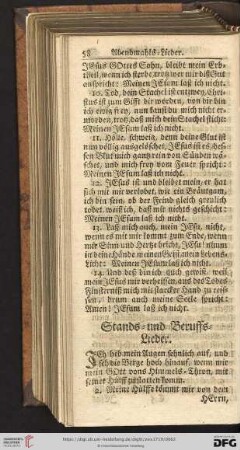 58 Abendmahls-Lieder.
JEsus GOttes Sohn, bleibt mein Erb-
theil, wenn ich sterbe, trotz wer mir diß Gut
anspricht: Meinen JEsum laß ich nicht.
10. Tod, dein Stachel ist entzwey,
JEsus ist zum Gifft dir worden, von dir bin
ich ewig frey, nun kanst du mich nicht er-
morden, trotz, daß mich dein Stachel sticht:
Meinen JEsum laß ich nicht.
11. Hölle, schweig, denn deine Glut ist
nun völlig ausgelöschet, JEsus ist es,
Blut mich gantz rein von Sünden wä-
schet, und mich frey vom Feuer spricht:
Meinen JEsum laß ich nicht.
12. JEsus ist und bleibet mein, er hat
sich mit mir verlobet, wie ein Bräutgam,
ich bin sein, ob der Feind gleich greulich
tobet, weiß ich, daß mir nichts geschicht:
Meinen JEsum laß ich nicht.
13. Laß mich auch, mein JEsu, nicht,
wenn es mit mir kommt zum Ende, wenn
mir Sinn und Hertze bricht, JEsu! nimm
in deine Hände meinen Geist, mein Lebens-
Licht: Meinen JEsum laß ich nicht.
14. Und deß bin ich auch gewiß, weil
mein JEsus mir verheissen, aus des Todes
Finsterniß mich mit starcker Hand zu reis-
sen; drum auch meine Seele spricht:
Amen! JEsum laß ich nicht.
Stands- und Beruffs-
Lieder.
ICh heb mein Augen sehnlich auf, und
seh die Berge hoch hinauf, wenn mir
mein GOtt vons Himmels-Thron, mit
seiner Hülff zu statten komm.
2. Meine Hülffe kömmt mir von dem
HErrn,
DFG